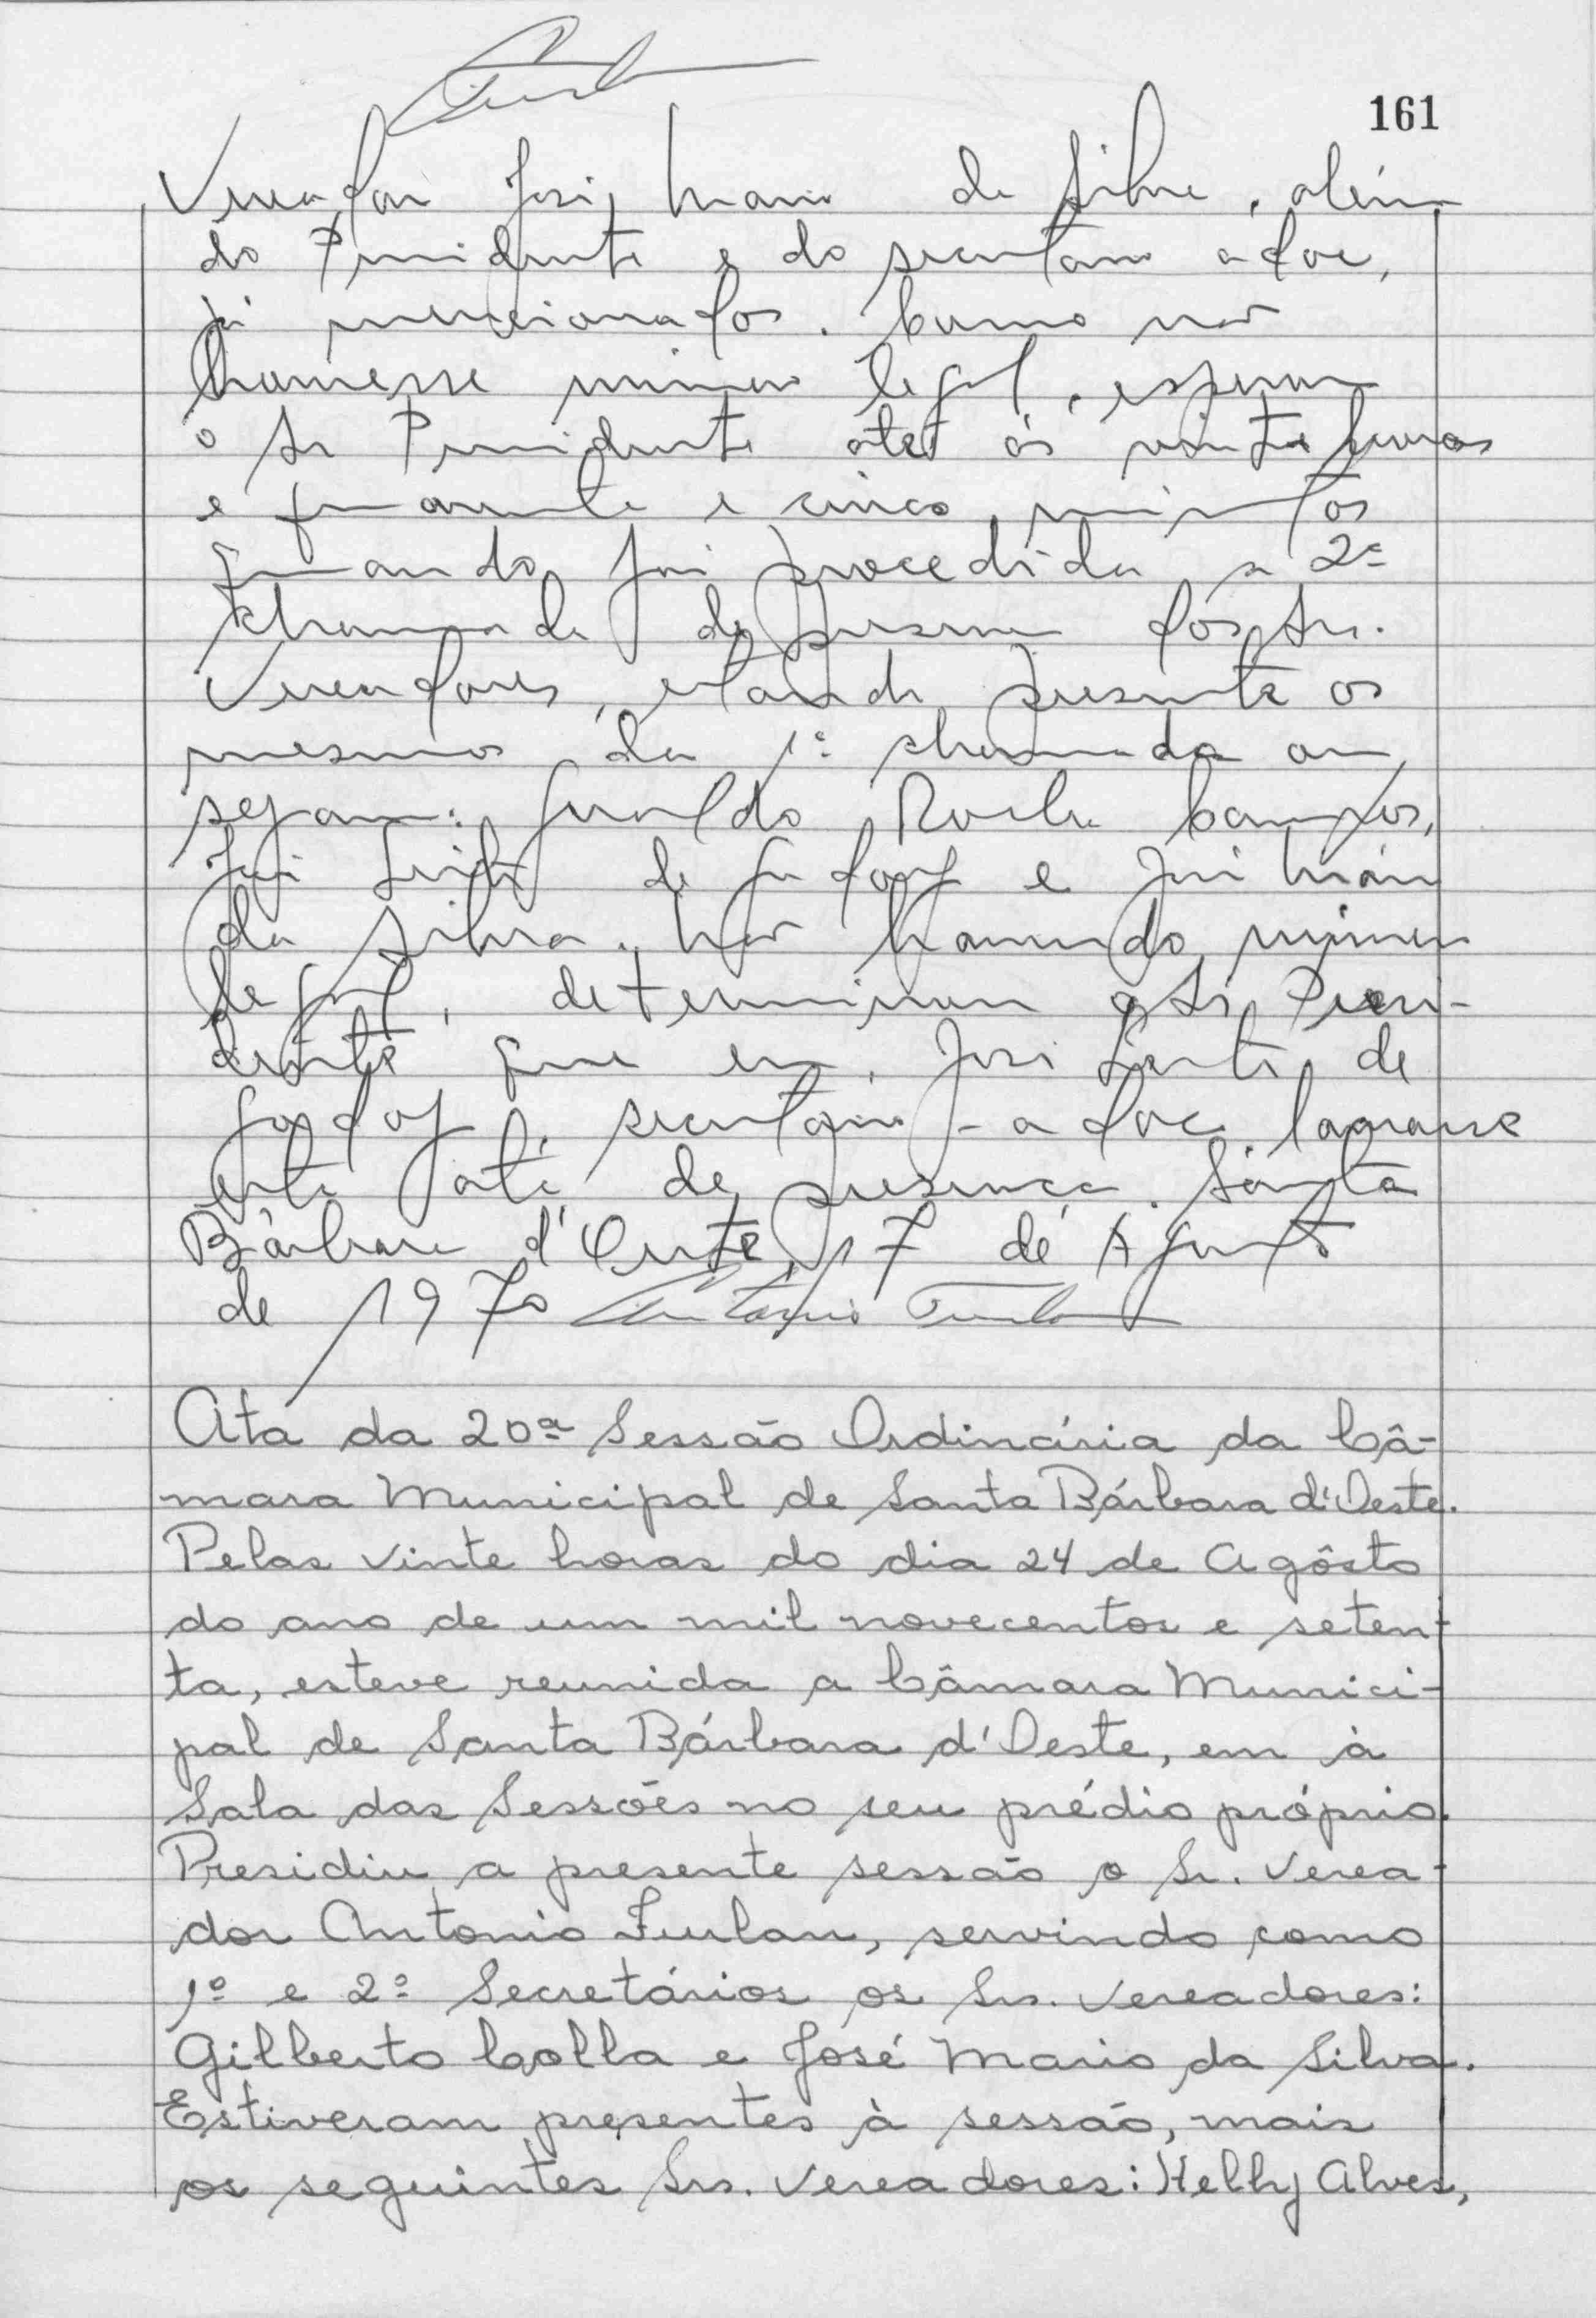 161
Vereador José Mario da Silva, além
do Presidente e do secretario adoc,
já mencionados. Como não
houvesse numero legal, esperou
o Sr Presidente até ás vinte horas
e quarenta e cinco minutos
quando foi procedida a 2ª
chamada de presença dos Srs.
Vereadores, estando presente os
mesmos da 1ª chamada ou
sejam: Geraldo Rocha Campos,
José Leite de Godoy e José Mário
da Silva. Não havendo número
legal, determinou o Sr Presi-
dente que eu, José Leite de
Godoy, secretário - adoc lavrasse
esta ata de presença. Santa
Bárbara d'Oeste, 17 de Agosto
de 1970 Antonio Furlan
Ata da 20ª Sessão Ordinária da Câ-
mara Municipal de Santa Bárbara d'Oeste.
Pelas vinte horas do dia 24 de Agôsto
do ano de um mil novecentos e seten-
ta, esteve reunida a Câmara Munici-
pal de Santa Bárbara d'Oeste, em à
Sala das Sessões no seu prédio próprio.
Presidiu a presente sessão o Sr. Verea-
dor Antonio Furlan, servindo como
1º e 2º Secretários os Srs. Vereadores:
Gilberto Colla e José Mario da Silva.
Estiveram presentes à sessão, mais
os seguintes Srs. Vereadores: Helly Alves,